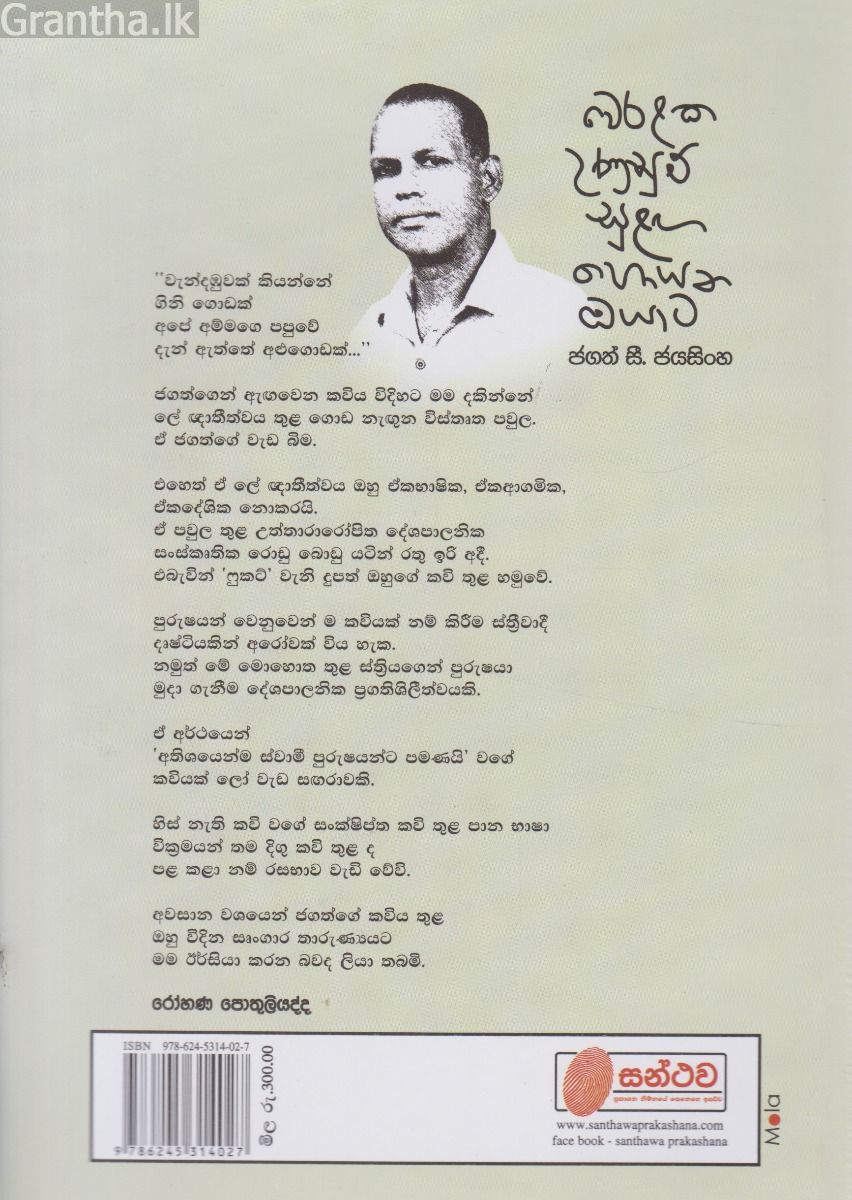 Grantha.lk
බරදක
උණුසුම්
සුළඟ
හොයන
ඔයාට
ජගත් සී. ජයසිංහ
"වැන්දඹුවක් කියන්නේ
ගිනි ගොඩක්
අපේ අම්මගෙ පපුවේ
දැන් ඇත්තේ අළුගොඩක්..."
ජගත්ගෙන් ඇඟවෙන කවිය විදිහට මම දකින්නේ
ලේ ඥාතීත්වය තුළ ගොඩ නැඟුන විස්තෘත පවුල.
ඒ ජගත්ගේ වැඩ බිම.
එහෙත් ඒ ලේ ඥාතීත්වය ඔහු ඒකභාෂික, ඒකආගමික,
ඒකදේශික නොකරයි.
ඒ පවුල තුළ උත්තාරාරෝපිත දේශපාලනික
සංස්කෘතික රොඩු බොඩු යටින් රතු ඉරි අදී.
එබැවින් 'ෆුකට්' වැනි දුපත් ඔහුගේ කවි තුළ හමුවේ.
පුරුෂයන් වෙනුවෙන් ම කවියක් නම් කිරීම ස්ත්‍රීවාදී
දෘෂ්ටියකින් අරෝවක් විය හැක.
නමුත් මේ මොහොත තුළ ස්ත්‍රියගෙන් පුරුෂයා
මුදා ගැනීම දේශපාලනික ප්‍රගතිශිලීත්වයකි.
ඒ අර්ථයෙන්
'අතිශයෙන්ම ස්වාමී පුරුෂයන්ට පමණයි' වගේ
කවියක් ලෝ වැඩ සඟරාවකි.
හිස් නැති කවි වගේ සංක්ෂිප්ත කවි තුළ පාන භාෂා
වික්‍රමයන් තම දිගු කවි තුළ ද
පළ කළා නම් රසභාව වැඩි වේවි.
අවසාන වශයෙන් ජගත්ගේ කවිය තුළ
ඔහු විදින සෘංගාර තාරුණ්‍යයට
මම ඊර්සියා කරන බවද ලියා තබමි.
රෝහණ පොතුලියද්ද
ISBN 978-624-5314-02-7
9 786245 314027
මිල රු.300.00
සන්ථව
www.santhawaprakashana.com
face book - santhawa prakashana
Mola